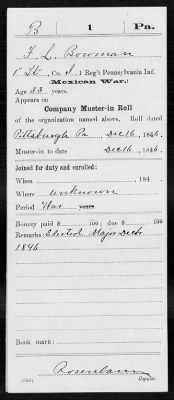 B 1 Pa.
F. L. Bowman
1" Lt., Co. I, 1 Reg't Pennsylvania Inf.
Mexican War.
Age 33 years.
Appears on
Company Muster-in Roll
of the organization named above. Roll dated
Pittsburgh Pa Dec 16, 1846.
Muster-in to date Dec 16, 1846.
Joined for duty and enrolled:
When , 184 .
Where unknown
Period War years.
Bounty paid $ 100; due $ 100
Remarks: Elected Major Dec
1846
Book mark:
Rosenlam
Copyist.